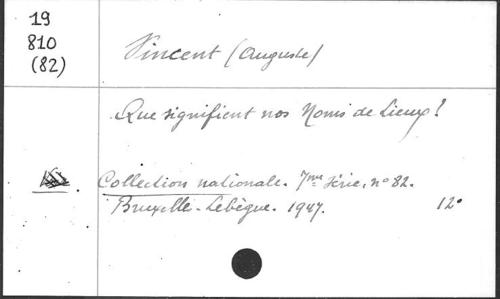 19
810
(82)
Vincent (Auguste)
Que signifient nos Noms de Lieux?
Collection nationale. 7me série, n° 82.
Bruxelle - Lebègue. 1947. 12°